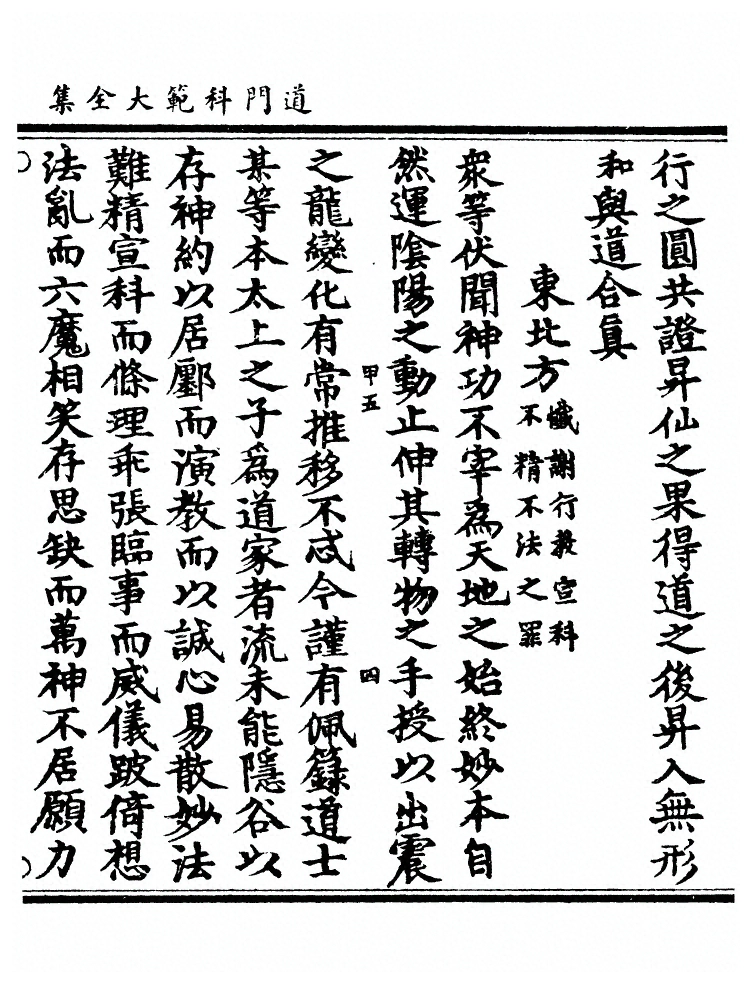 道門科範大全集
行之圓共證昇仙之果得道之後昇入無形
和與道合眞
東北方懺謝行教宣科
不精不法之罪
衆等伏聞神功不宰爲天地之始終妙本自
然運陰陽之動止伸其轉物之手授以出震
甲五
四
之龍變化有常推移不忒今謹有佩籙道士
某等本太上之子爲道家者流未能隱谷以
存神約以居鄽而演教而以誠心易散妙法
難精宣科而條理乖張臨事而威儀跛倚想
法亂而六魔相笑存思缺而萬神不居願力